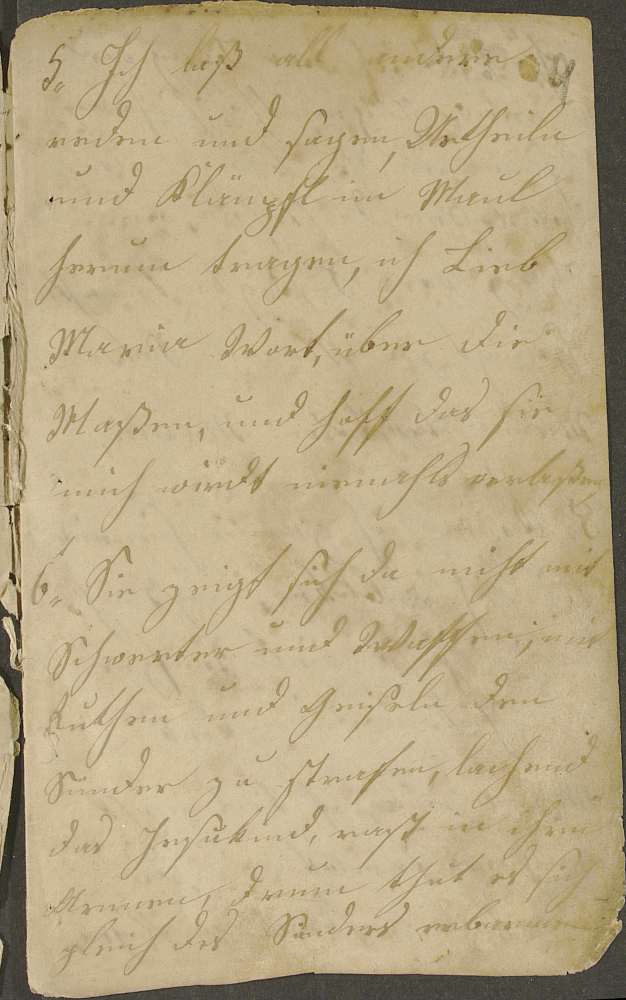 5. Ich laß all andere
9
reden und sagen, Urtheiln
und Klämpfl im Maul
herum tragen, ich Lieb
Maria Wort, über die
Maßen, und hoff das sie
mich wirdt niemahls verlaßen,
6. Sie zeigt sich da nicht mit
Schwerter und Waffen, mit
Ruthen und Geiseln den
Sünder zu strafen, lachend
das Jesukind, rast in ihren
Armen, drum thut es sich
gleich des Sünders erbarmen